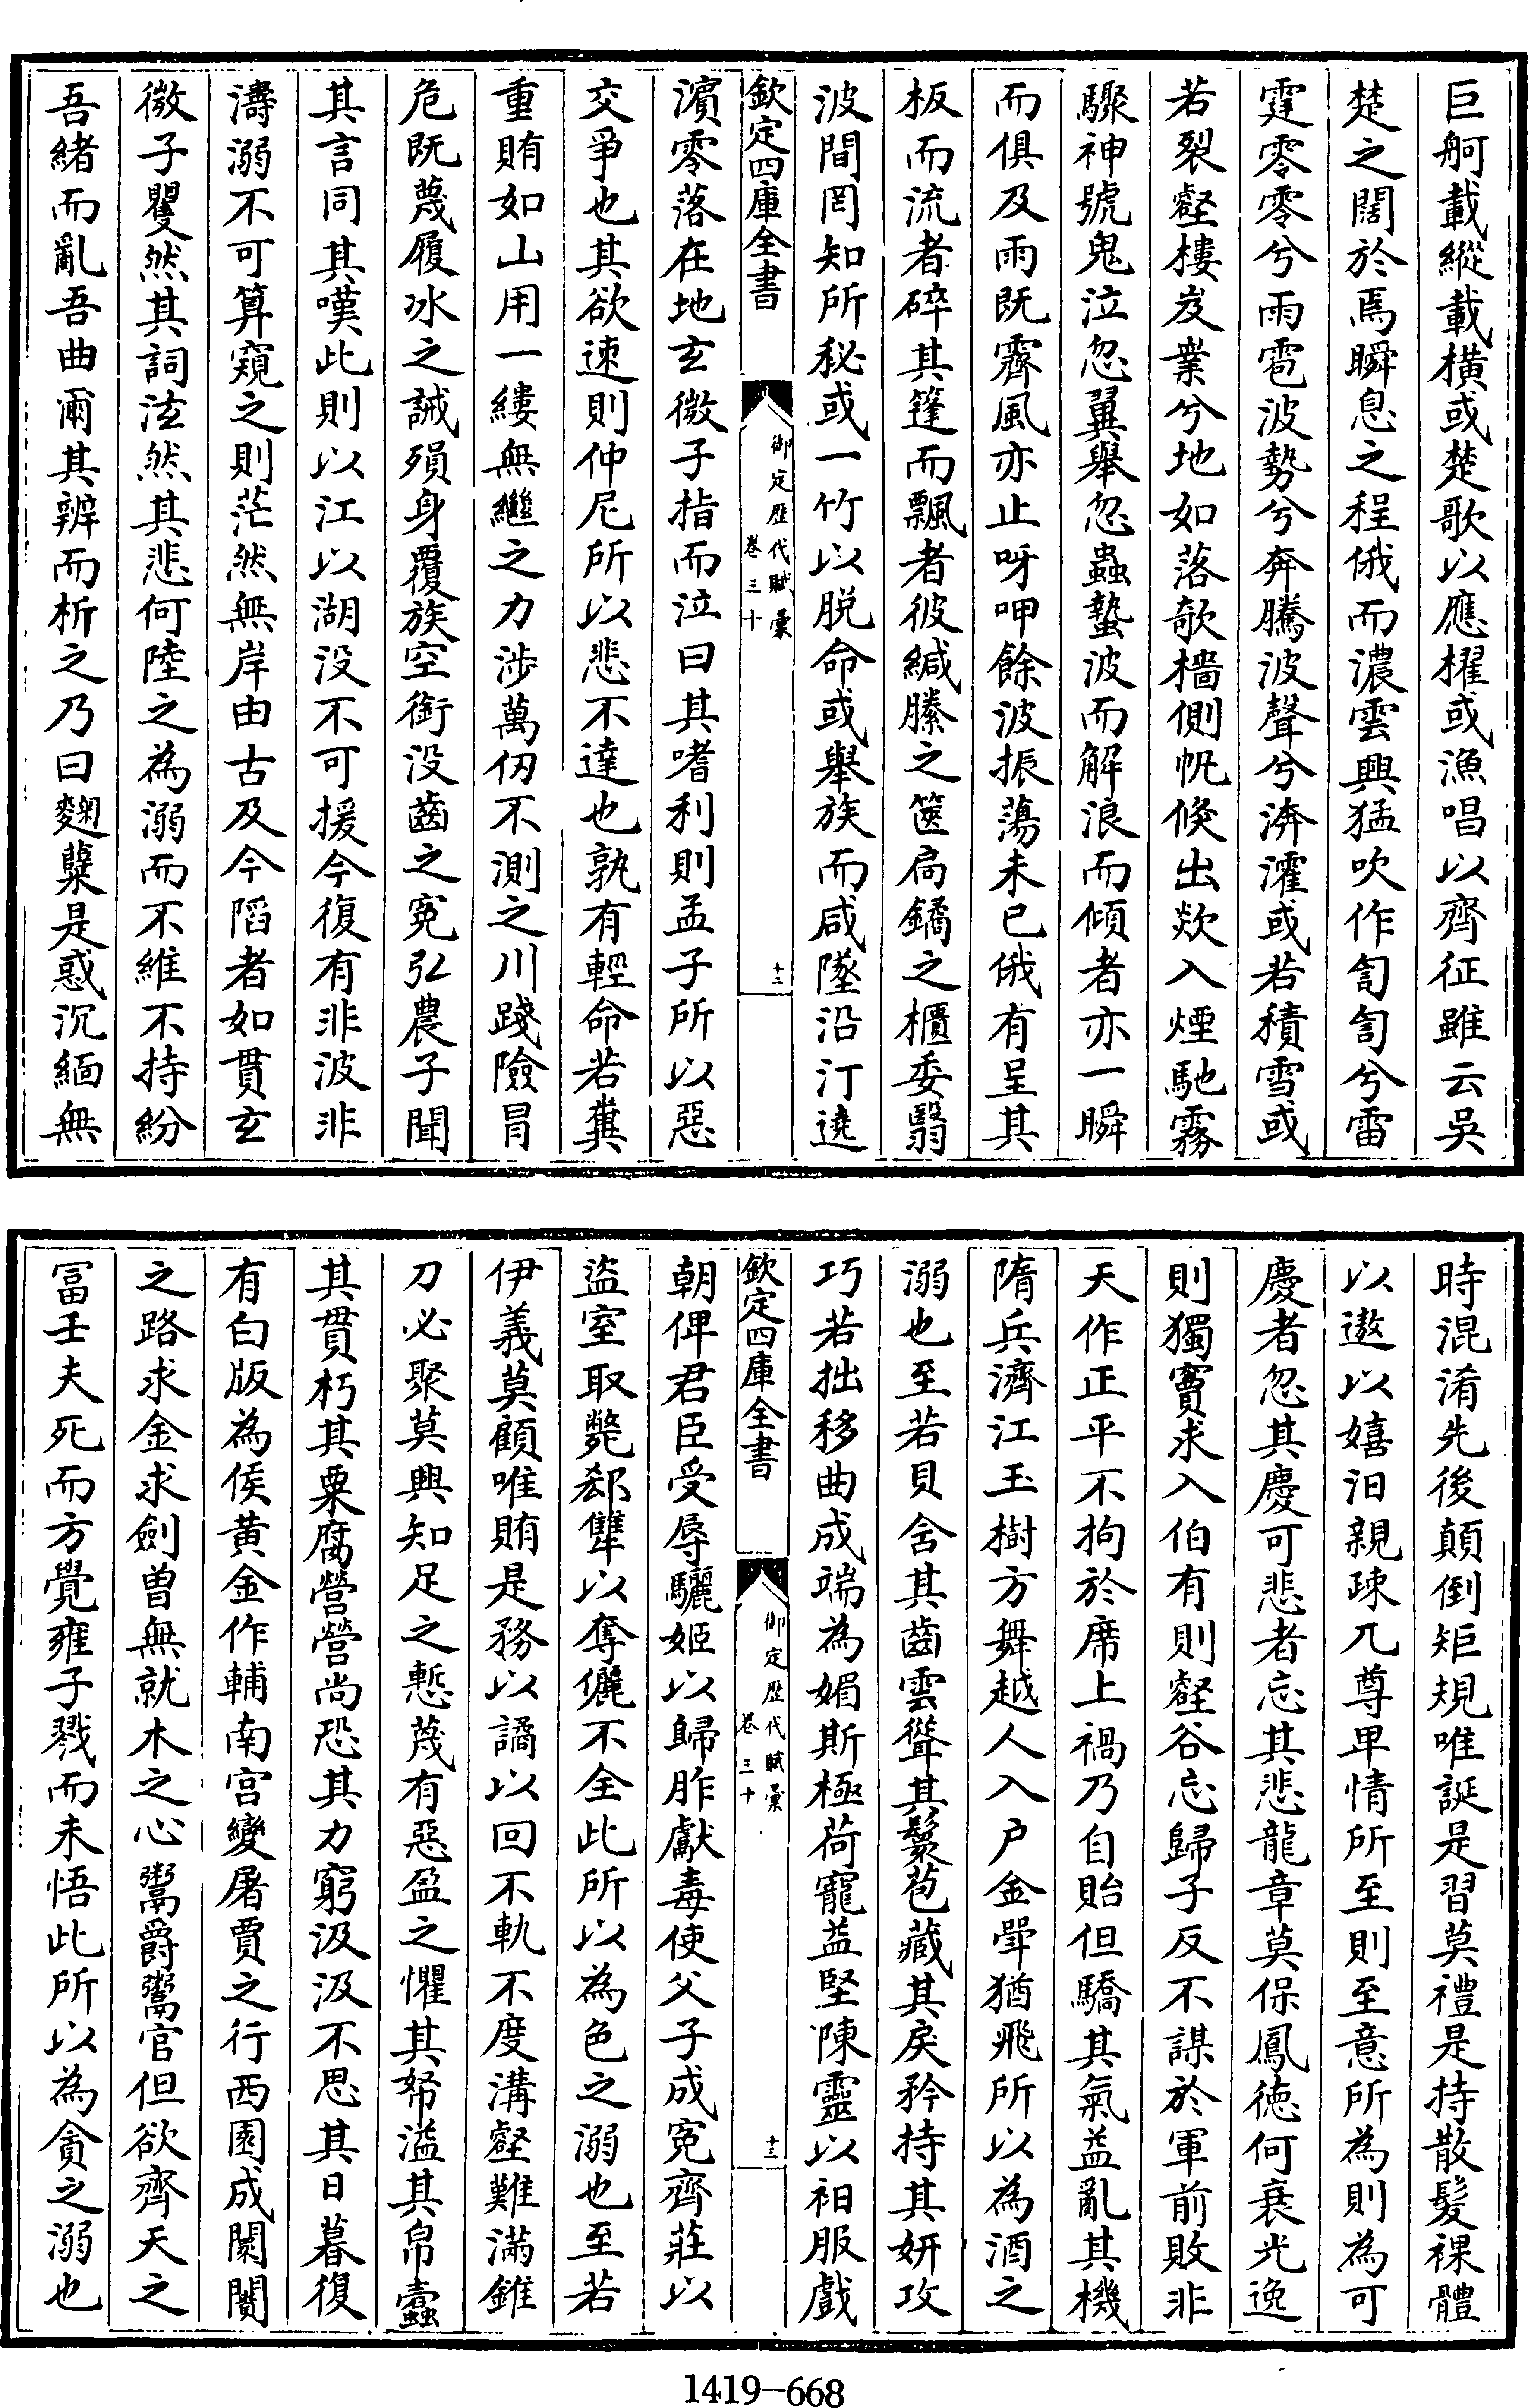 巨舸載縱載横或楚歌以應櫂或漁唱以齊征雖云吳
楚之闊於焉瞬息之程俄而濃雲興猛吹作訇訇兮雷
霆零零兮雨雹波勢兮奔騰波聲兮㶁灌或若積雪或
若裂壑樓岌業兮地如落欹檣側帆倐出歘入煙馳霧
驟神號鬼泣忽翼舉忽蟲蟄波而解浪而傾者亦一瞬
而俱及雨既霽風亦止呀呷餘波振蕩未已俄有呈其
板而流者碎其篷而飄者彼緘縢之篋扃鐍之櫃委翳
波間罔知所秘或一竹以脱命或舉族而咸墜沿汀遶
欽定四庫全書
御定歴代賦彙
卷三十
十二
濵零落在地玄微子指而泣曰其嗜利則孟子所以惡
交爭也其欲速則仲尼所以悲不達也孰有輕命若糞
重賄如山用一縷無繼之力涉萬仞不測之川踐險冒
危既蔑履冰之誡殞身覆族空銜没齒之寃弘農子聞
其言同其嘆此則以江以湖没不可援今復有非波非
濤溺不可算窺之則茫然無岸由古及今陷者如貫玄
微子瞿然其詞泫然其悲何陸之為溺而不維不持紛
吾緒而亂吾曲爾其辨而析之乃曰麴糱是惑沉緬無
時混淆先後顛倒矩規唯誕是習莫禮是持散髪裸體
以遨以嬉汨親疎兀尊卑情所至則至意所為則為可
慶者忽其慶可悲者忘其悲龍章莫保鳳德何衰光逸
則獨竇求入伯有則壑谷忘歸子反不謀於軍前敗非
天作正平不拘於席上禍乃自貽但驕其氣益亂其機
隋兵濟江玉樹方舞越人入户金斝猶飛所以為酒之
溺也至若貝含其齒雲聳其鬟苞藏其戾矜持其妍攻
巧若拙移曲成端為媚斯極荷寵益堅陳靈以衵服戲
欽定四庫全書
御定歴代賦彙
卷三十
十三
朝俾君臣受辱驪姬以歸胙獻毒使父子成寃齊莊以
盜室取斃郄犨以奪儷不全此所以為色之溺也至若
伊義莫顧唯賄是務以譎以回不軌不度溝壑難滿錐
刀必聚莫興知足之慙蔑有惡盈之懼其帑溢其帛蠹
其貫朽其粟腐營營尚恐其力窮汲汲不思其日暮復
有白版為侯黄金作輔南宫變屠賈之行西園成闤闠
之路求金求劍曽無就木之心鬻爵鬻官但欲齊天之
冨壬夫死而方覺雍子戮而未悟此所以為貪之溺也
1419-668